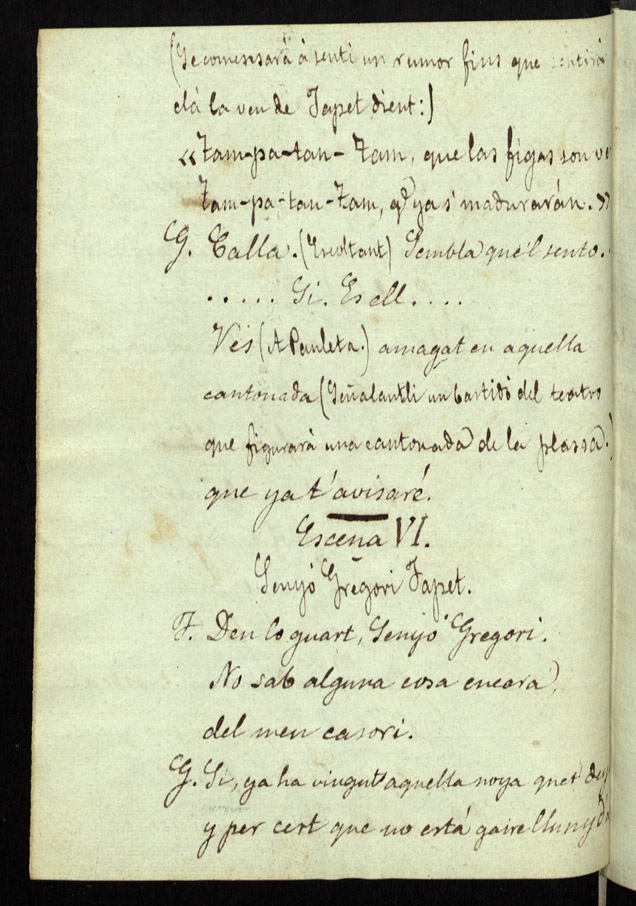 (Se comensará á sentí un rumor fins que sentirá
clá la veu de Tapet dient:)
«Zam-pa-tan-Zam, que las figas son ve
Zam-pa-tan-Zam, q.e ya s' madurarán.»
G. Calla. (Escoltant) Sembla que 'l sento.
..... Si. Es ell....
Ves (A Pauleta.) amagat en aquella
cantonada (Señalantli un bastidó del teatro
que figurará una cantonada de la plassa.)
que ya t' avisaré.
Escena VI.
Senyó Gregori Tapet.
T. Deu lo guart, Senyó Gregori.
No sab alguna cosa encara,
del meu casori.
G. Si, ya ha vingut aquella noya que t
y per cert que no está gaire lluny